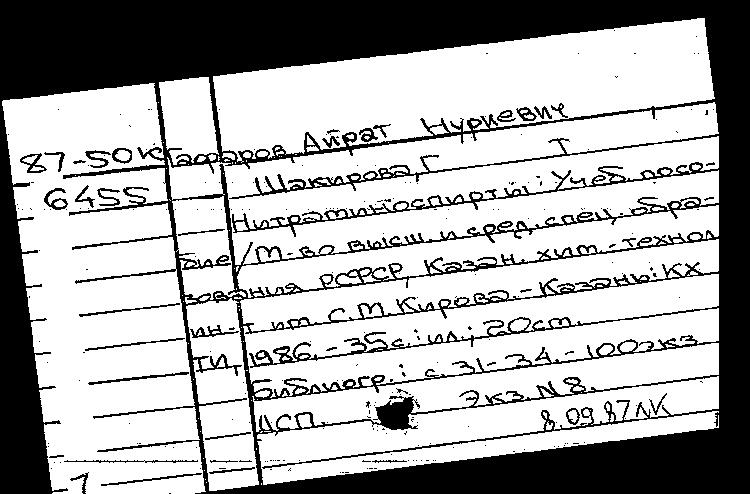 87-50К Гафаров, Айрат Нуриевич
6455 Шакирова, Г Т
Нитраминоспирты: Учеб. посо-
бие / М-во высш. и сред. спец. обра-
зования РСФСР, Казан. хим.-технол
ин-т им. С.М. Кирова.-Казань: КХ
ТИ, 1986.-35с.: ил.; 20см.
Библиогр.: с. 31-34.-100экз
ДСП. Экз. N 8.
8.09.87 ЛК
7